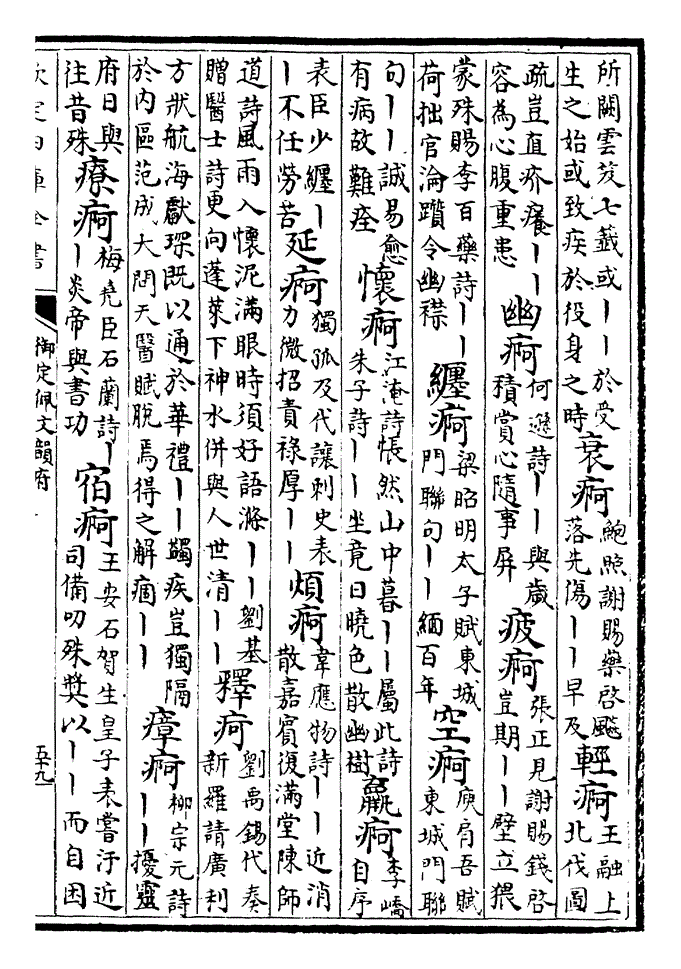 所闕雲笈七籤或丨丨於受生之始或致疾於役身之時衰痾鮑照謝賜藥啓飈落先傷丨丨早及輕痾王融上北伐圖
疏豈直疥癢丨丨容為心腹重患幽痾何遜詩丨丨與歲積賞心隨事屏疲痾張正見謝賜錢啓豈期丨丨壁立猥
蒙殊賜李百藥詩丨丨荷拙官淪躓令幽襟纒痾梁昭明太子賦東城門聯句丨丨緬百年空痾庾肩吾賦東城門聯
句丨丨誠易愈有病故難痊懷痾江淹詩悵然山中暮丨丨屬此詩朱子詩丨丨坐竟日曉色散幽樹羸痾李嶠自序
表臣少纒丨丨不任勞苦延痾獨孤及代讓刺史表力微招責祿厚丨丨煩痾韋應物詩丨丨近消散嘉賓復滿堂陳師
道詩風雨入懷泥滿眼時須好語滌丨丨劉基贈醫士詩更向蓬萊下神水併與人世清丨丨釋痾劉禹錫代奏新羅請廣利
方狀航海獻琛既以通於華禮丨丨蠲疾豈獨隔於内區范成大問天醫賦脫焉得之解痼丨丨瘴痾柳宗元詩丨丨擾靈
府日與往昔殊療痾梅堯臣石蘭詩丨丨炎帝與書功宿痾王安石賀生皇子表嘗汙近司備叨殊奬以丨丨而自困
欽定四庫全書
御定佩文韻府
五十九